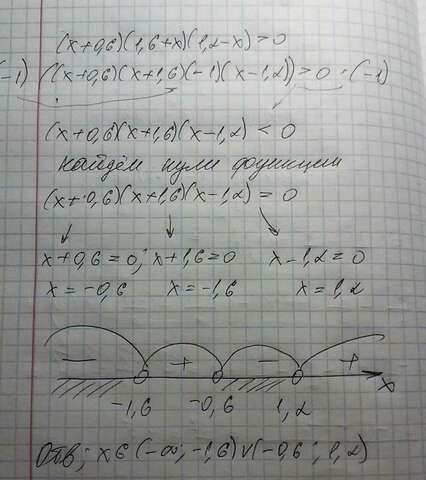 (x+0,6)(1,6+x)(1,2-x)>0
-1) ((x+0,6)(x+1,6)(-1)(x-1,2))>0 ·(-1)
(x+0,6)(x+1,6)(x-1,2)<0
найдём нули функции
(x+0,6)(x+1,6)(x-1,2)=0
x+0,6=0; x+1,6=0 x-1,2=0
x=-0,6 x=-1,6 x=1,2
- + - +
-1,6 -0,6 1,2 x
Отв; x∈(-∞;-1,6)∨(-0,6; 1,2)